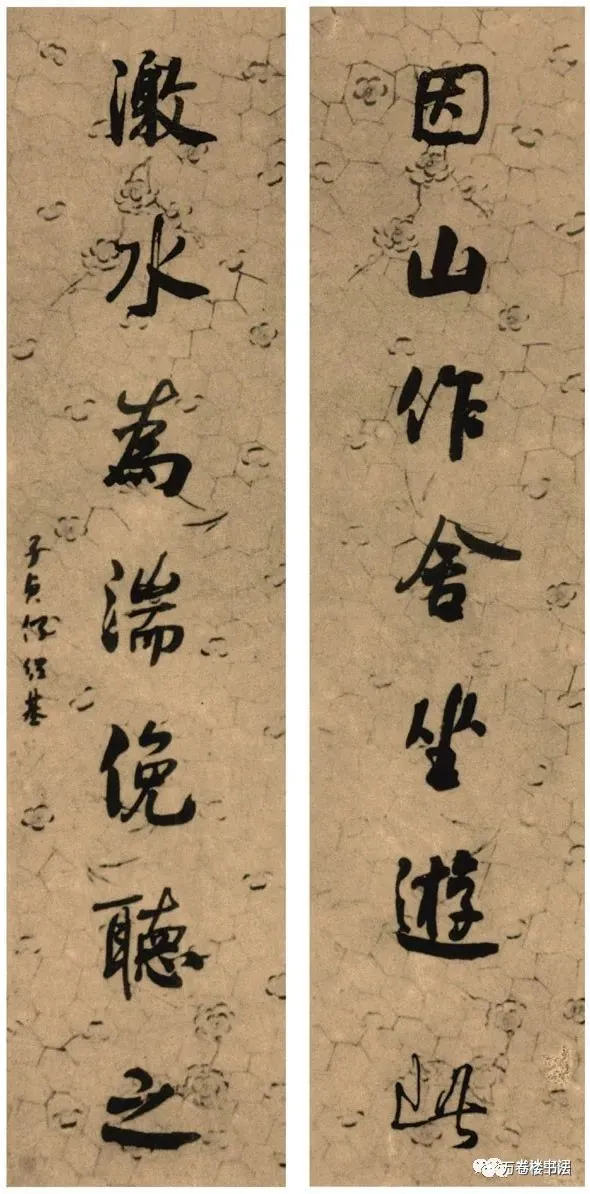 因山作舍坐遊此
激水為湍俛聽之
子貞何紹基
万卷楼书法